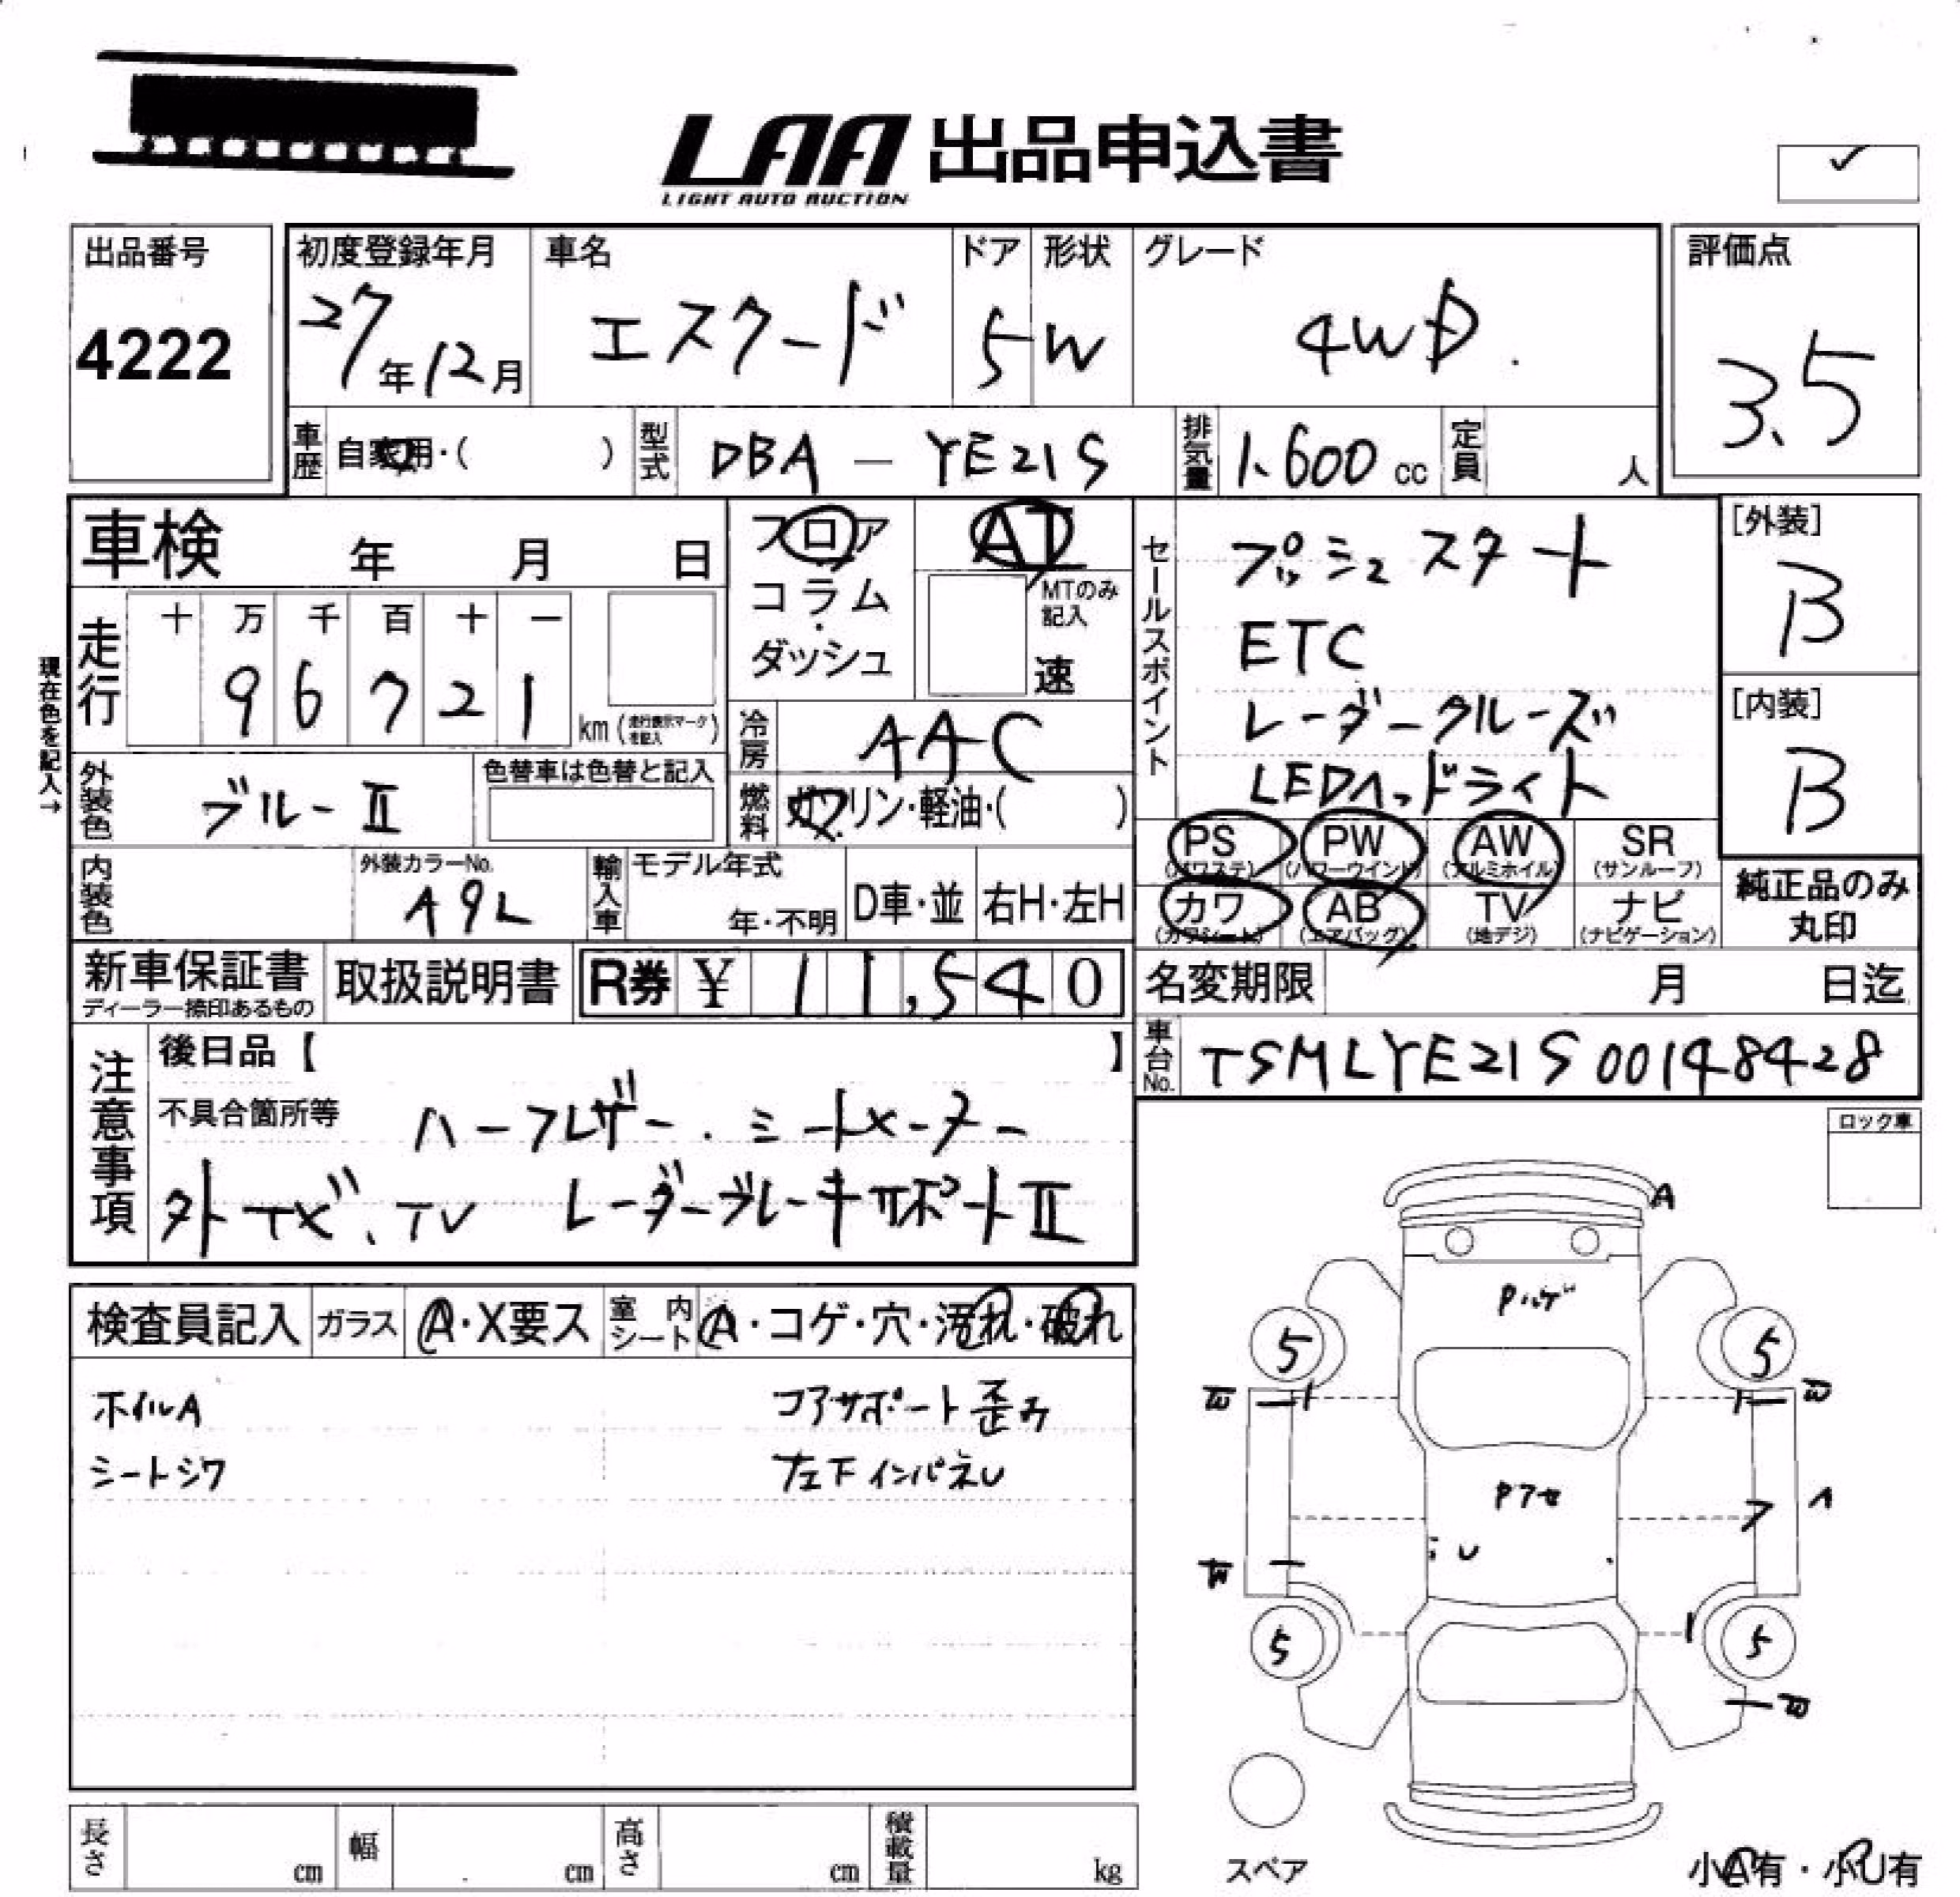 LAA 出品申込書
LIGHT AUTO AUCTION
出品番号
4222
初度登録年月
27年12月
車名
エスクード
ドア
5
形状
W
グレード
4WD
評価点
3.5
車歴
自家用・( )
型式
DBA — YE21S
排気量
1.600 cc
定員
人
車検 年 月 日
フロア
コラム
・
ダッシュ
AT
MTのみ
記入
速
セールスポイント
プッシュスタート
ETC
レーダークルーズ
LEDヘッドライト
[外装]
B
[内装]
B
現在色を記入→
走行
十 万 千 百 十 一
9 6 7 2 1
km (走行表示マークを記入)
冷房
AAC
外装色
ブルーⅡ
色替車は色替と記入
燃料
ガソリン・軽油・( )
PS (パワステ)
PW (パワーウインド)
AW (アルミホイル)
SR (サンルーフ)
カワ (カワシート)
AB (エアバッグ)
TV (地デジ)
ナビ (ナビゲーション)
純正品のみ
丸印
内装色
外装カラーNo.
A9L
輸入車
モデル年式
年・不明
D車・並
右H・左H
新車保証書
ディーラー捺印あるもの
取扱説明書
R券 ¥ 11,540
名変期限 月 日迄
車台No.
TSMLYE21S00148428
注意事項
後日品【 】
不具合箇所等
ハーフレザー . シートヒーター
TV レーダーブレーキサポートⅡ
ロック車
検査員記入
ガラス
A・X要ス
室内シート
A・コゲ・穴・汚れ・破れ
ホイルA
コアサポート歪み
シートシワ
左下インパネU
A
5
5
W
W
A
U
W
5
5
W
スペア
長さ cm
幅 cm
高さ cm
積載量 kg
小A有・小U有